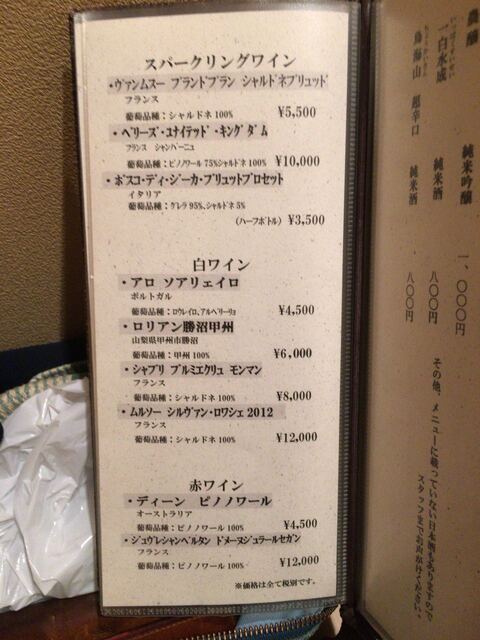 スパークリングワイン
・ヴァンムスー ブランドブラン シャルドネブリュッド
フランス
葡萄品種：シャルドネ 100% ¥5,500
・ベリーズ・ユナイテッド・キングダム
フランス シャンパーニュ
葡萄品種：ピノノワール 75%シャルドネ 100% ¥10,000
・ボスコ・ディ・ジーカ・ブリュットプロセット
イタリア
葡萄品種：グレラ 95%、シャルドネ 5%
(ハーフボトル) ¥3,500
白ワイン
・アロ ソアリェイロ
ポルトガル
葡萄品種：ロウレイロ、アルベリーリョ ¥4,500
・ロリアン勝沼甲州
山梨県甲州市勝沼
葡萄品種：甲州 100% ¥6,000
・シャブリ プルミエクリュ モンマン
フランス
葡萄品種：シャルドネ 100% ¥8,000
・ムルソー シルヴァン・ロワシェ 2012
フランス
葡萄品種：シャルドネ 100% ¥12,000
赤ワイン
・ディーン ピノノワール
オーストラリア
葡萄品種：ピノノワール 100% ¥4,500
・ジュヴレシャンベルタン ドメーヌジェラールセガン
フランス
葡萄品種：ピノノワール 100% ¥12,000
※価格は全て税別です。
農醸 純米吟醸 一、〇〇〇円
一白水成 純米酒 八〇〇円
鳥海山 超辛口 純米酒 八〇〇円
その他、メニューに載っていない日本酒もありますので
スタッフまでお声がけください。